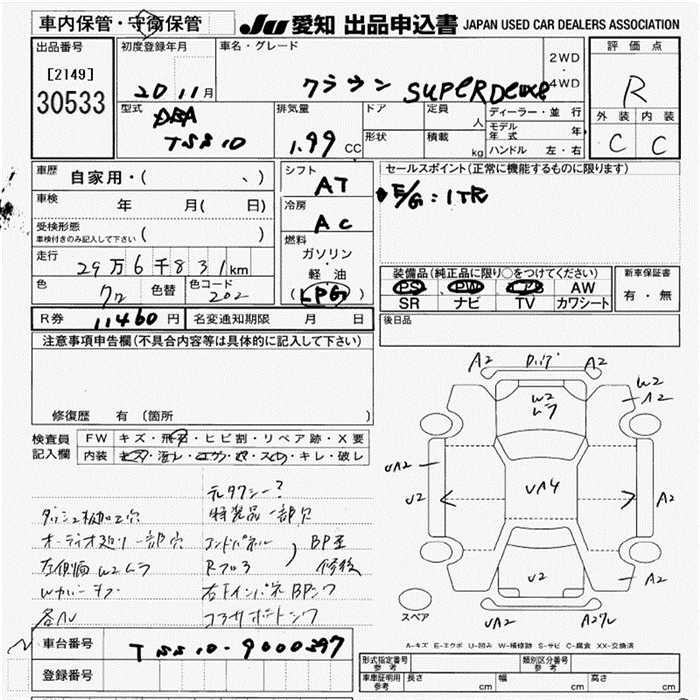 車内保管・守衛保管
JU 愛知 出品申込書 JAPAN USED CAR DEALERS ASSOCIATION
出品番号
[2149]
30533
初度登録年月
20 11月
車名・グレード
クラウン SUPERDeluxe
2WD
・
4WD
評価点
R
外装 内装
C C
型式
DBA
TSS10
排気量
1.99 CC
ドア
形状
定員
人
積載
kg
ディーラー・並行
モデル年式 年
ハンドル 左・右
車歴
自家用・( 、 )
車検
年 月( 日)
受検形態
車検付きのみ記入して下さい ( )
走行
29万6千831km
色
クロ
色替
色コード
202
シフト
AT
冷房
AC
燃料
ガソリン
・
軽油
(LPG)
セールスポイント(正常に機能するものに限ります)
E/G:1TR
装備品(純正品に限り○をつけてください)
PS PW AB AW
SR ナビ TV カワシート
新車保証書
有・無
R券 11460円
名変通知期限 月 日
後日品
注意事項申告欄(不具合内容等は具体的に記入して下さい)
修復歴 有 (箇所
検査員記入欄
FW キズ・飛石・ヒビ割・リペア跡・X要
内装 キレ・破レ
元タクシー?
ダッシュ板加工穴 特装品一部欠
オーディオ廻り一部穴 コンドパネル
BP歪
左側面W2ムラ Rフロ3
修後
Wカバーキズ 右FインパネBPンク
各ハゲ コアサポートンク
車台番号 TSS10-9000397
登録番号
A2 A2
W2
A2
W2
ムラ
UA2
U2
UA4
A2
U2
A2
UA2 A2
スペア
A-キズ E-エクボ U-凹み W-補修跡 S-サビ C-腐食 XX-交換済
形式指定番号
参考
類別区分番号
参考
車庫証明用
参考
長さ cm 幅 cm 高さ cm